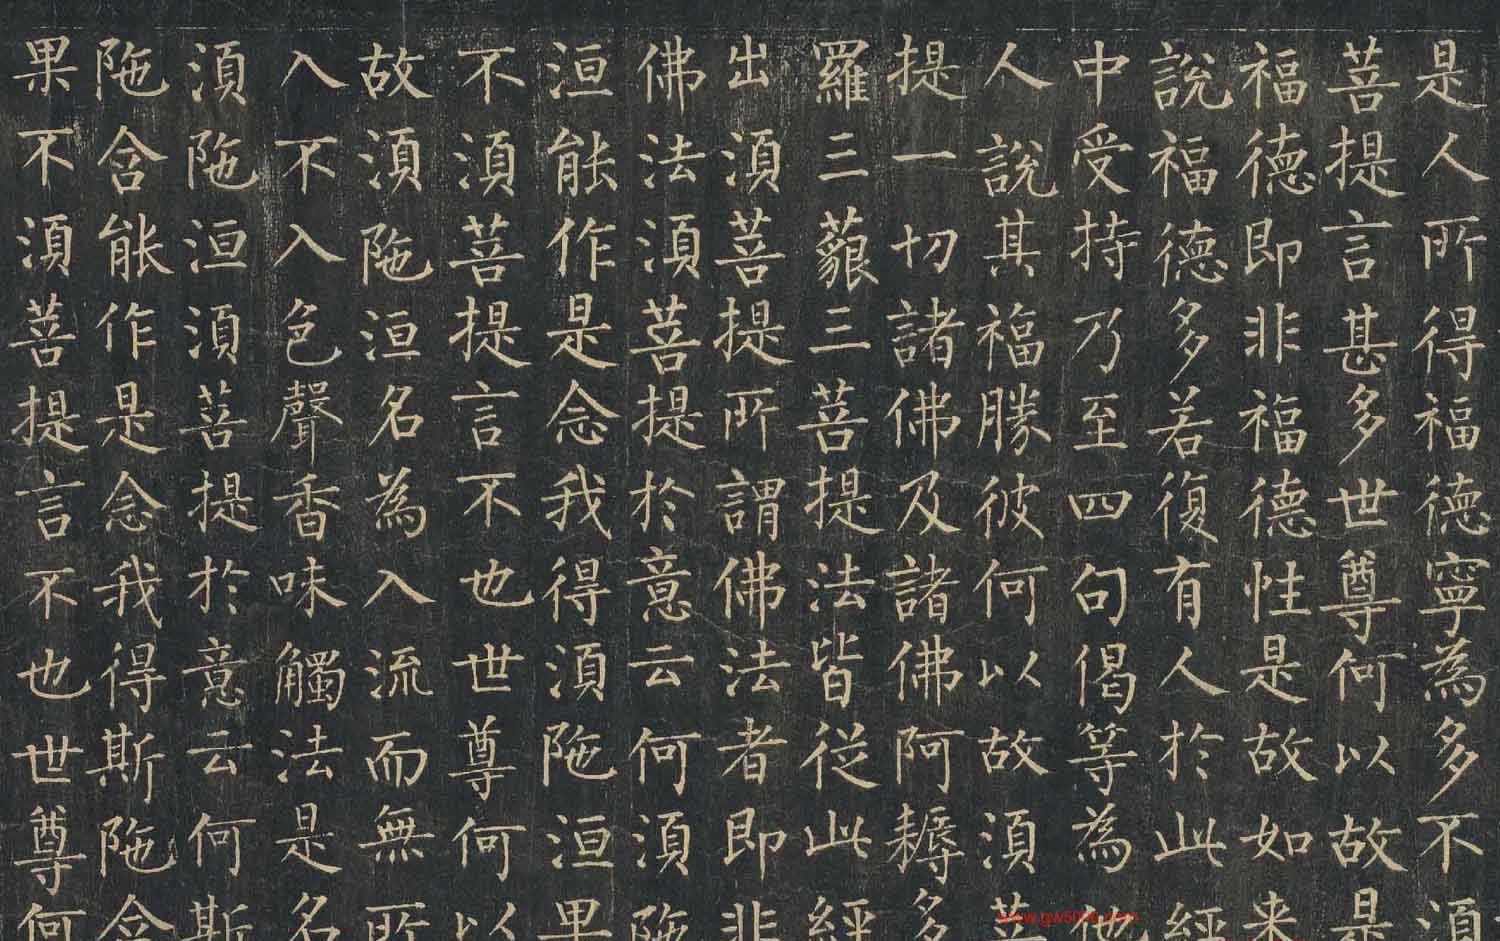 是人所得福德寧為多不須
菩提言甚多世尊何以故是
福德即非福德性是故如来
說福德多若復有人於此經
中受持乃至四句偈等為他
人說其福勝彼何以故須菩
提一切諸佛及諸佛阿耨多
羅三藐三菩提法皆從此經
出須菩提所謂佛法者即非
佛法須菩提於意云何須陁
洹能作是念我得須陁洹果
不須菩提言不也世尊何以
故須陁洹名為入流而無所
入不入色聲香味觸法是名
須陁洹須菩提於意云何斯
陁含能作是念我得斯陁含
果不須菩提言不也世尊何